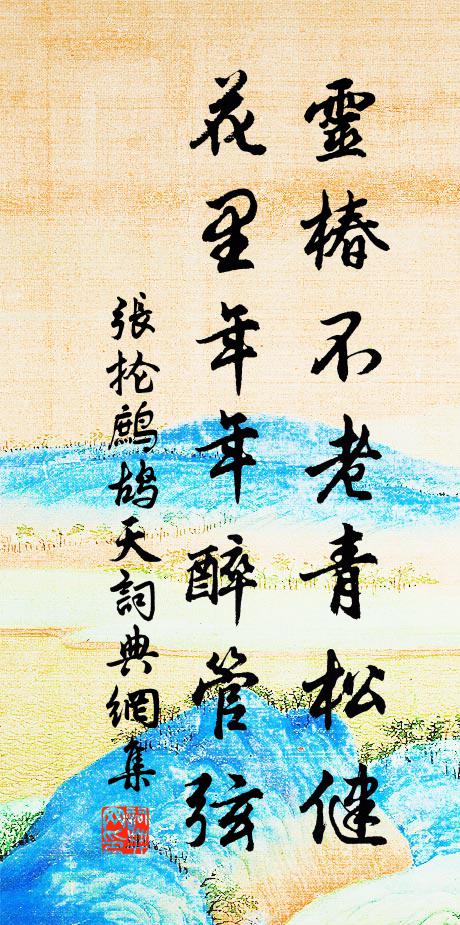 靈椿不老青松健
花里年年醉管弦
張掄鷓鴣天詞典網集